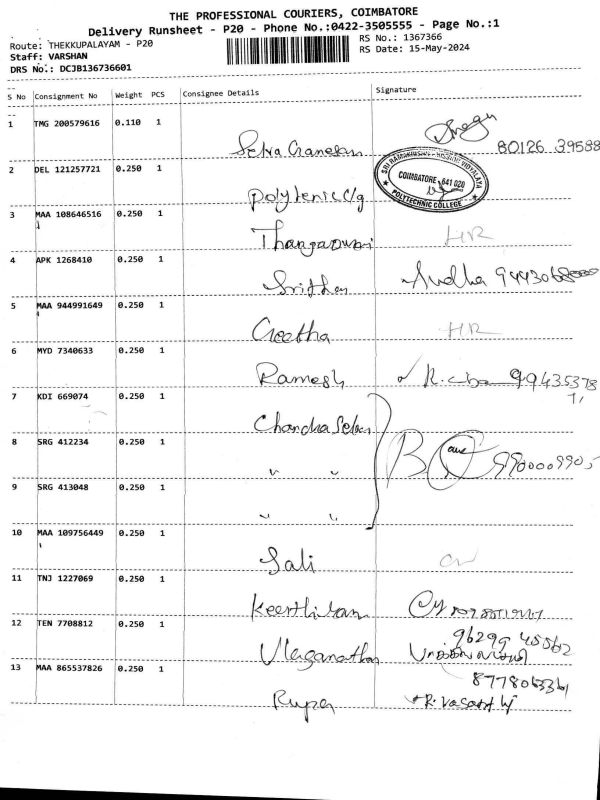 THE PROFESSIONAL COURIERS, COIMBATORE
Delivery Runsheet - P20 - Phone No.:0422-3505555 - Page No.:1
Route: THEKKUPALAYAM - P20
RS No.: 1367366
Staff: VARSHAN
RS Date: 15-May-2024
DRS No.: DCJB136736601
S No Consignment No Weight PCS Consignee Details Signature
1 TMG 200579616 0.110 1
Selva Ganesan 80126 39588
2 DEL 121257721 0.250 1
SRI RAMAKRISHNA MISSION VIDYALAYA
COIMBATORE - 641 020
POLYTECHNIC COLLEGE
Polytenic clg
3 MAA 108646516 0.250 1
HR
4 APK 1268410 0.250 1
Srithar Sudha
5 MAA 944991649 0.250 1
Geetha HR
6 MYD 7340633 0.250 1
Ramesh
7 KDI 669074 0.250 1
8 SRG 412234 0.250 1
" "
9900009905
9 SRG 413048 0.250 1
" "
10 MAA 109756449 0.250 1
Sali
11 TNJ 1227069 0.250 1
12 TEN 7708812 0.250 1
Ulaganathan
13 MAA 865537826 0.250 1
Rupa R. Vasanthi